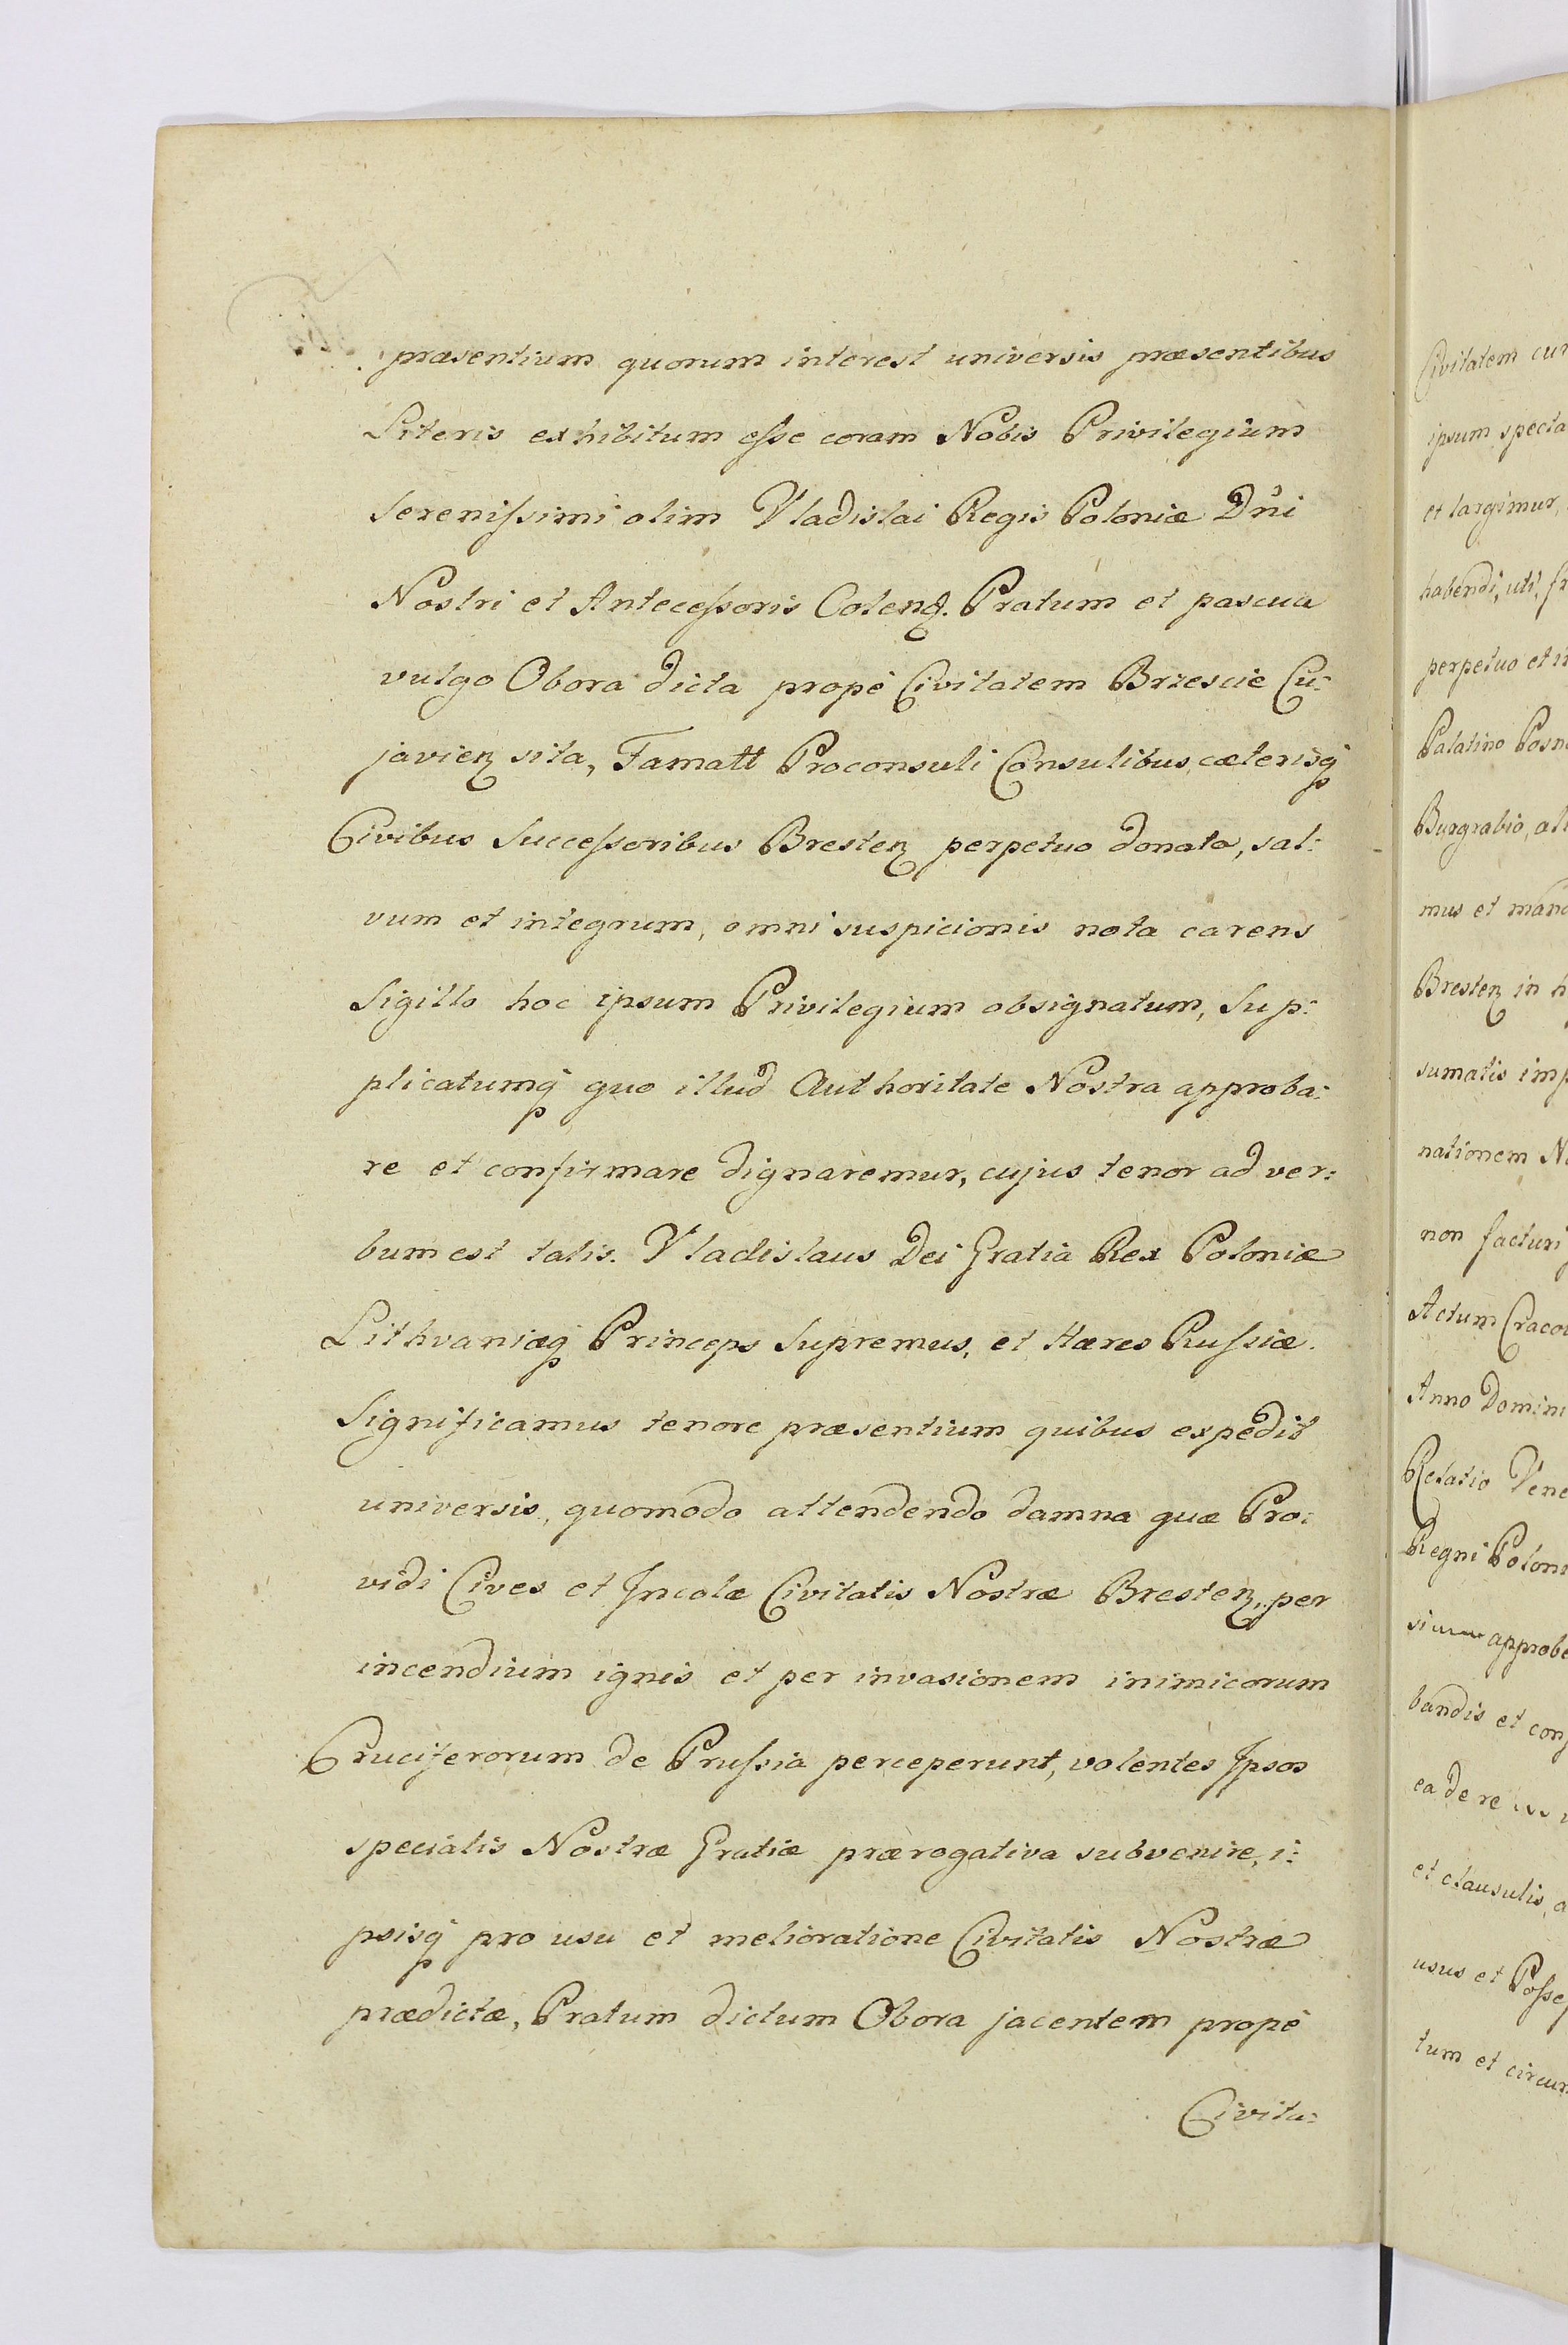 præsentium quorum interest universis præsentibus
Literis exhibitum eſse coram Nobis Privilegium
Sereniſsimi olim Vladislai Regis Poloniæ Dn̄i
Nostri et Anteceſsoris Colenđ. Pratum et pascua
vulgo Obora dicta propè Civitatem Brzescie Cu:
javieꝶ sita, Famatt Proconsuli Consulibus, cæterisꝗ
Civibus Succeſsoribus Bresteꝶ perpetuo donata, sal:
vum et integrum, omni suspicionis nota carens
Sigillo hoc ipsum Privilegium obsignatum, Sup:
plicatumꝗ quo illud Authoritate Nostra approba:
re et confirmare dignaremur, cujus tenor ad ver:
bum est talis. Vladislaus Dei Gratia Rex Poloniæ
Lithvaniæꝗ Princeps Supremus, et Hæres Ruſsiæ.
Significamus tenore præsentium quibus expedit
universis, quomodo attendendo damna quæ Pro:
vidi Cives et Incolæ Civitatis Nostræ Bresteꝶ, per
incendium ignis et per invasionem inimicorum
Cruciferorum de Pruſsia perceperunt, volentes Ipsos
specialis Nostræ Gratiæ prærogativa subvenire, i:
psisꝗ pro usu et melioratione Civitatis Nostræ
prædictæ, Pratum dictum Obora jacentem propè
Civita:
Civitatem cu
ipsum specta
et largimur,
habendi, uti, fr
perpetuo et i
Palatino Posn
Burgrabio, al
mus et man
Bresteꝶ in h
sumatis imp
nationem N
non facturi
Actum Craco
Anno Domini
Relatio Vene
Regni Poloni
approbe
bandis et con
ea de re
et clausulis, a
usus et Poſse
tum et circu